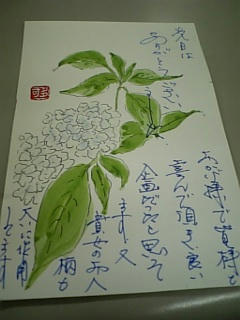 先日は
ありがとうございました
おかげ様で皆様も
喜んで頂き、良い
企画だったと思って
ます 又
貴女のお人
柄も
大いに作用
してます